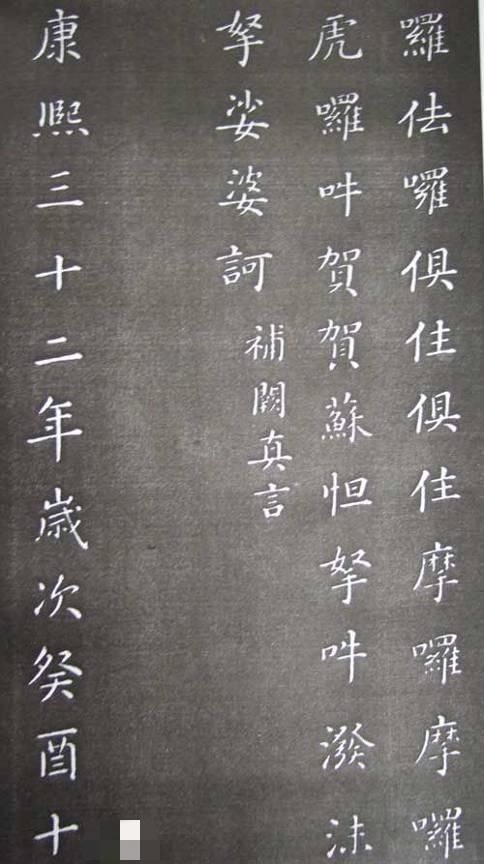 囉佉囉俱住俱住摩囉摩囉
虎囉吽賀賀蘇怛拏吽潑沫
拏娑婆訶 補闕真言
康熙三十二年歲次癸酉十